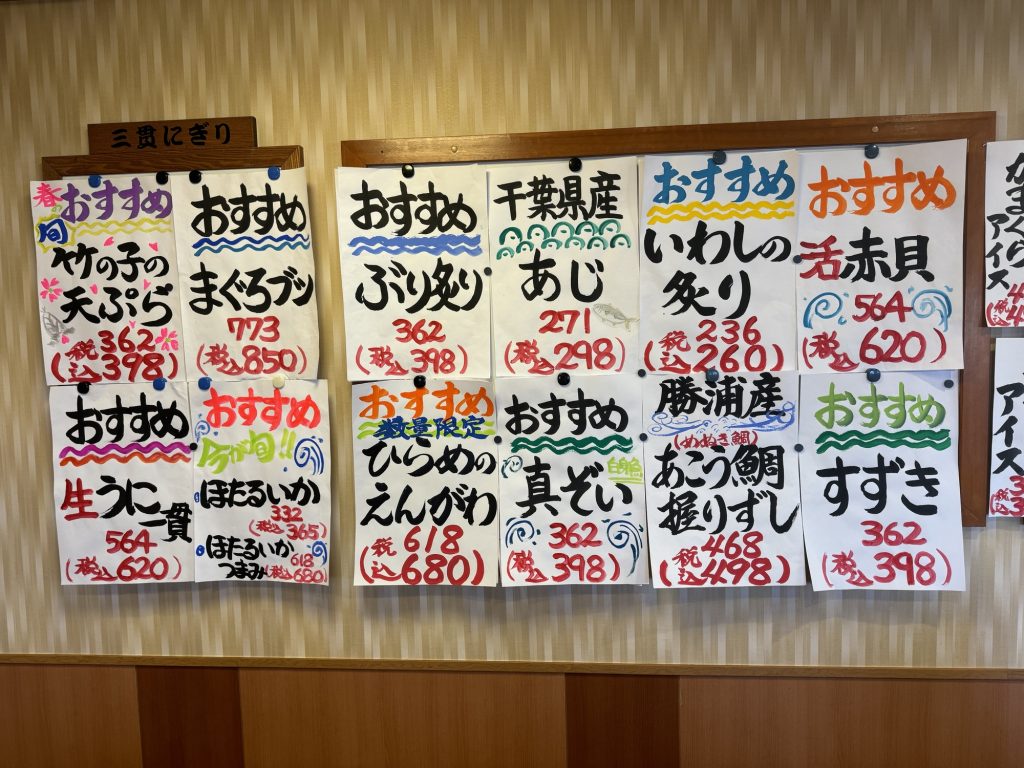 三貫にぎり
春の旬
おすすめ
竹の子の
天ぷら
362
(税込398)
おすすめ
まぐろブツ
773
(税込850)
おすすめ
ぶり炙り
362
(税込398)
千葉県産
あじ
271
(税込298)
おすすめ
いわしの
炙り
236
(税込260)
おすすめ
活赤貝
564
(税込620)
かまくら
アイス
おすすめ
生うに一貫
564
(税込620)
おすすめ
今が旬!!
ほたるいか
332
(税込365)
ほたるいか
つまみ
618
(税込680)
おすすめ
数量限定
ひらめの
えんがわ
618
(税込680)
おすすめ
白身魚
真ぞい
362
(税込398)
勝浦産
(めぬき鯛)
あこう鯛
握りずし
468
(税込498)
おすすめ
すずき
362
(税込398)
アイス